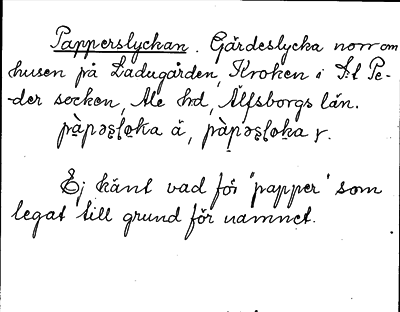 Papperslyckan. Gärdeslycka norr om
husen på Ladugården, Kroken i S:t Pe-
der socken, Ale hd, Älfsborgs län.
pàpəʂḷo̤ka ä, pàpəʂḷo̤ka r.
Ej känt vad för "papper" som
legat till grund för namnet.